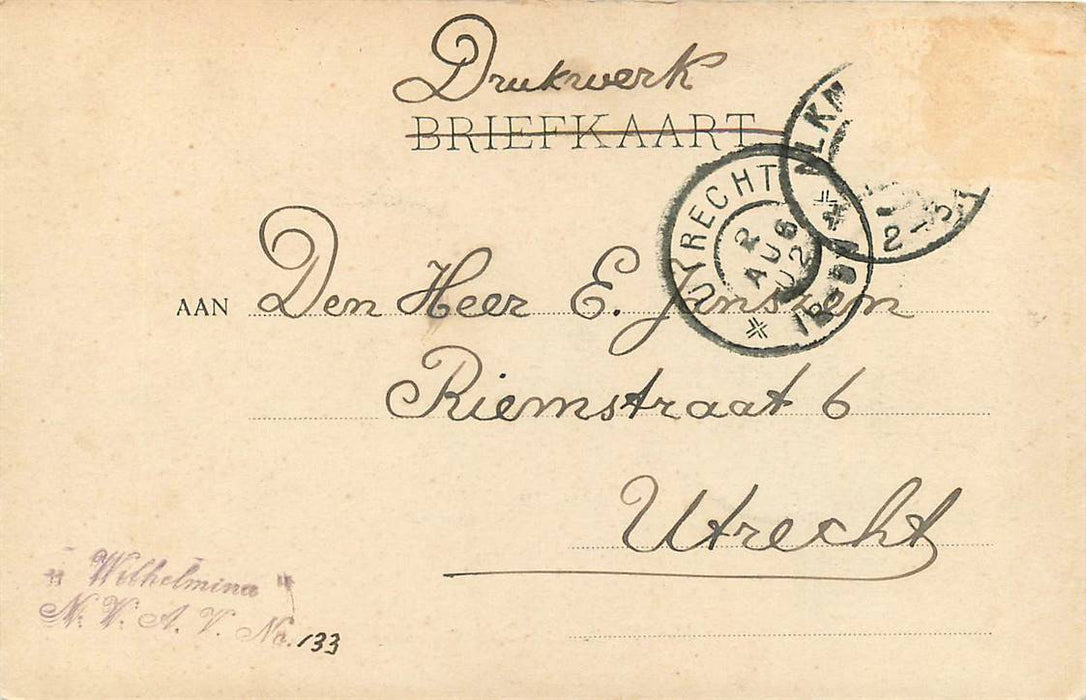 Drukwerk
BRIEFKAART
UTRECHT
2 AUG 02
2-3
AAN Den Heer E. Janszem
Riemstraat 6
Utrecht
"Wilhelmina"
N. V. A. V. No. 133